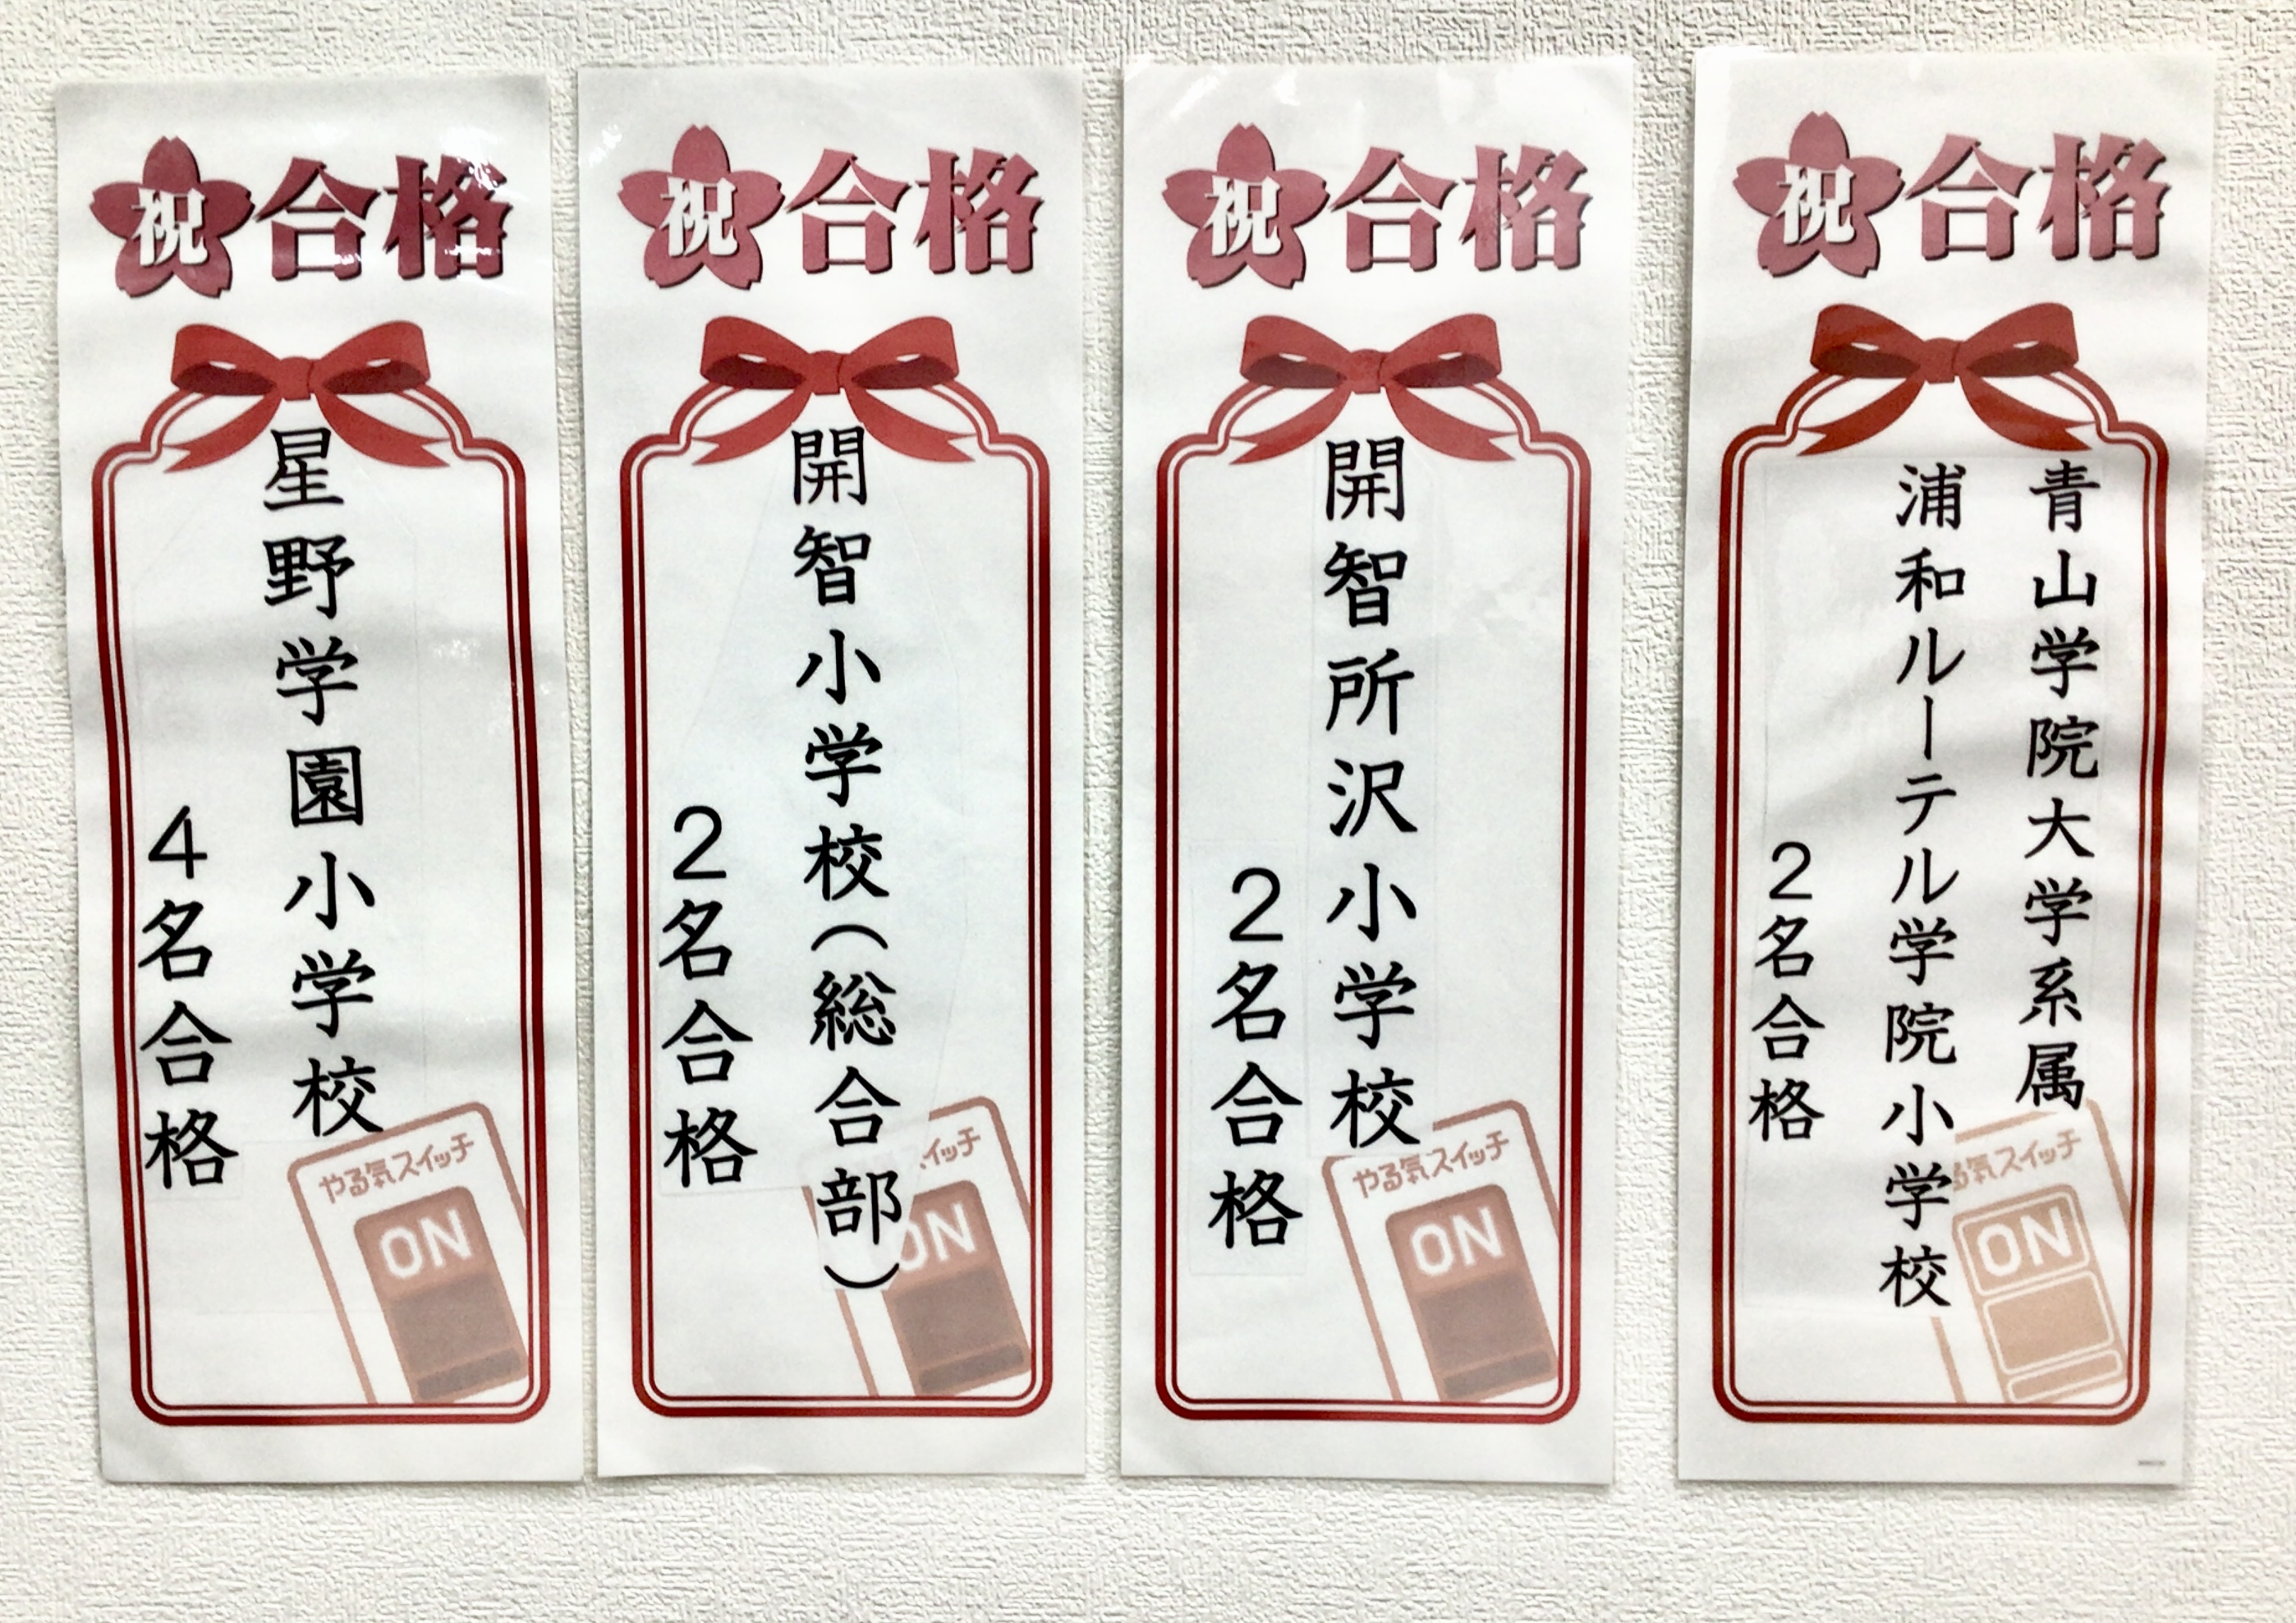 祝合格
星野学園小学校
4名合格
やる気スイッチ
ON
祝合格
開智小学校(総合部)
2名合格
イッチ
ON
祝合格
開智所沢小学校
2名合格
やる気スイッチ
ON
祝合格
青山学院大学系属
浦和ルーテル学院小学校
2名合格
る気スイッチ
ON